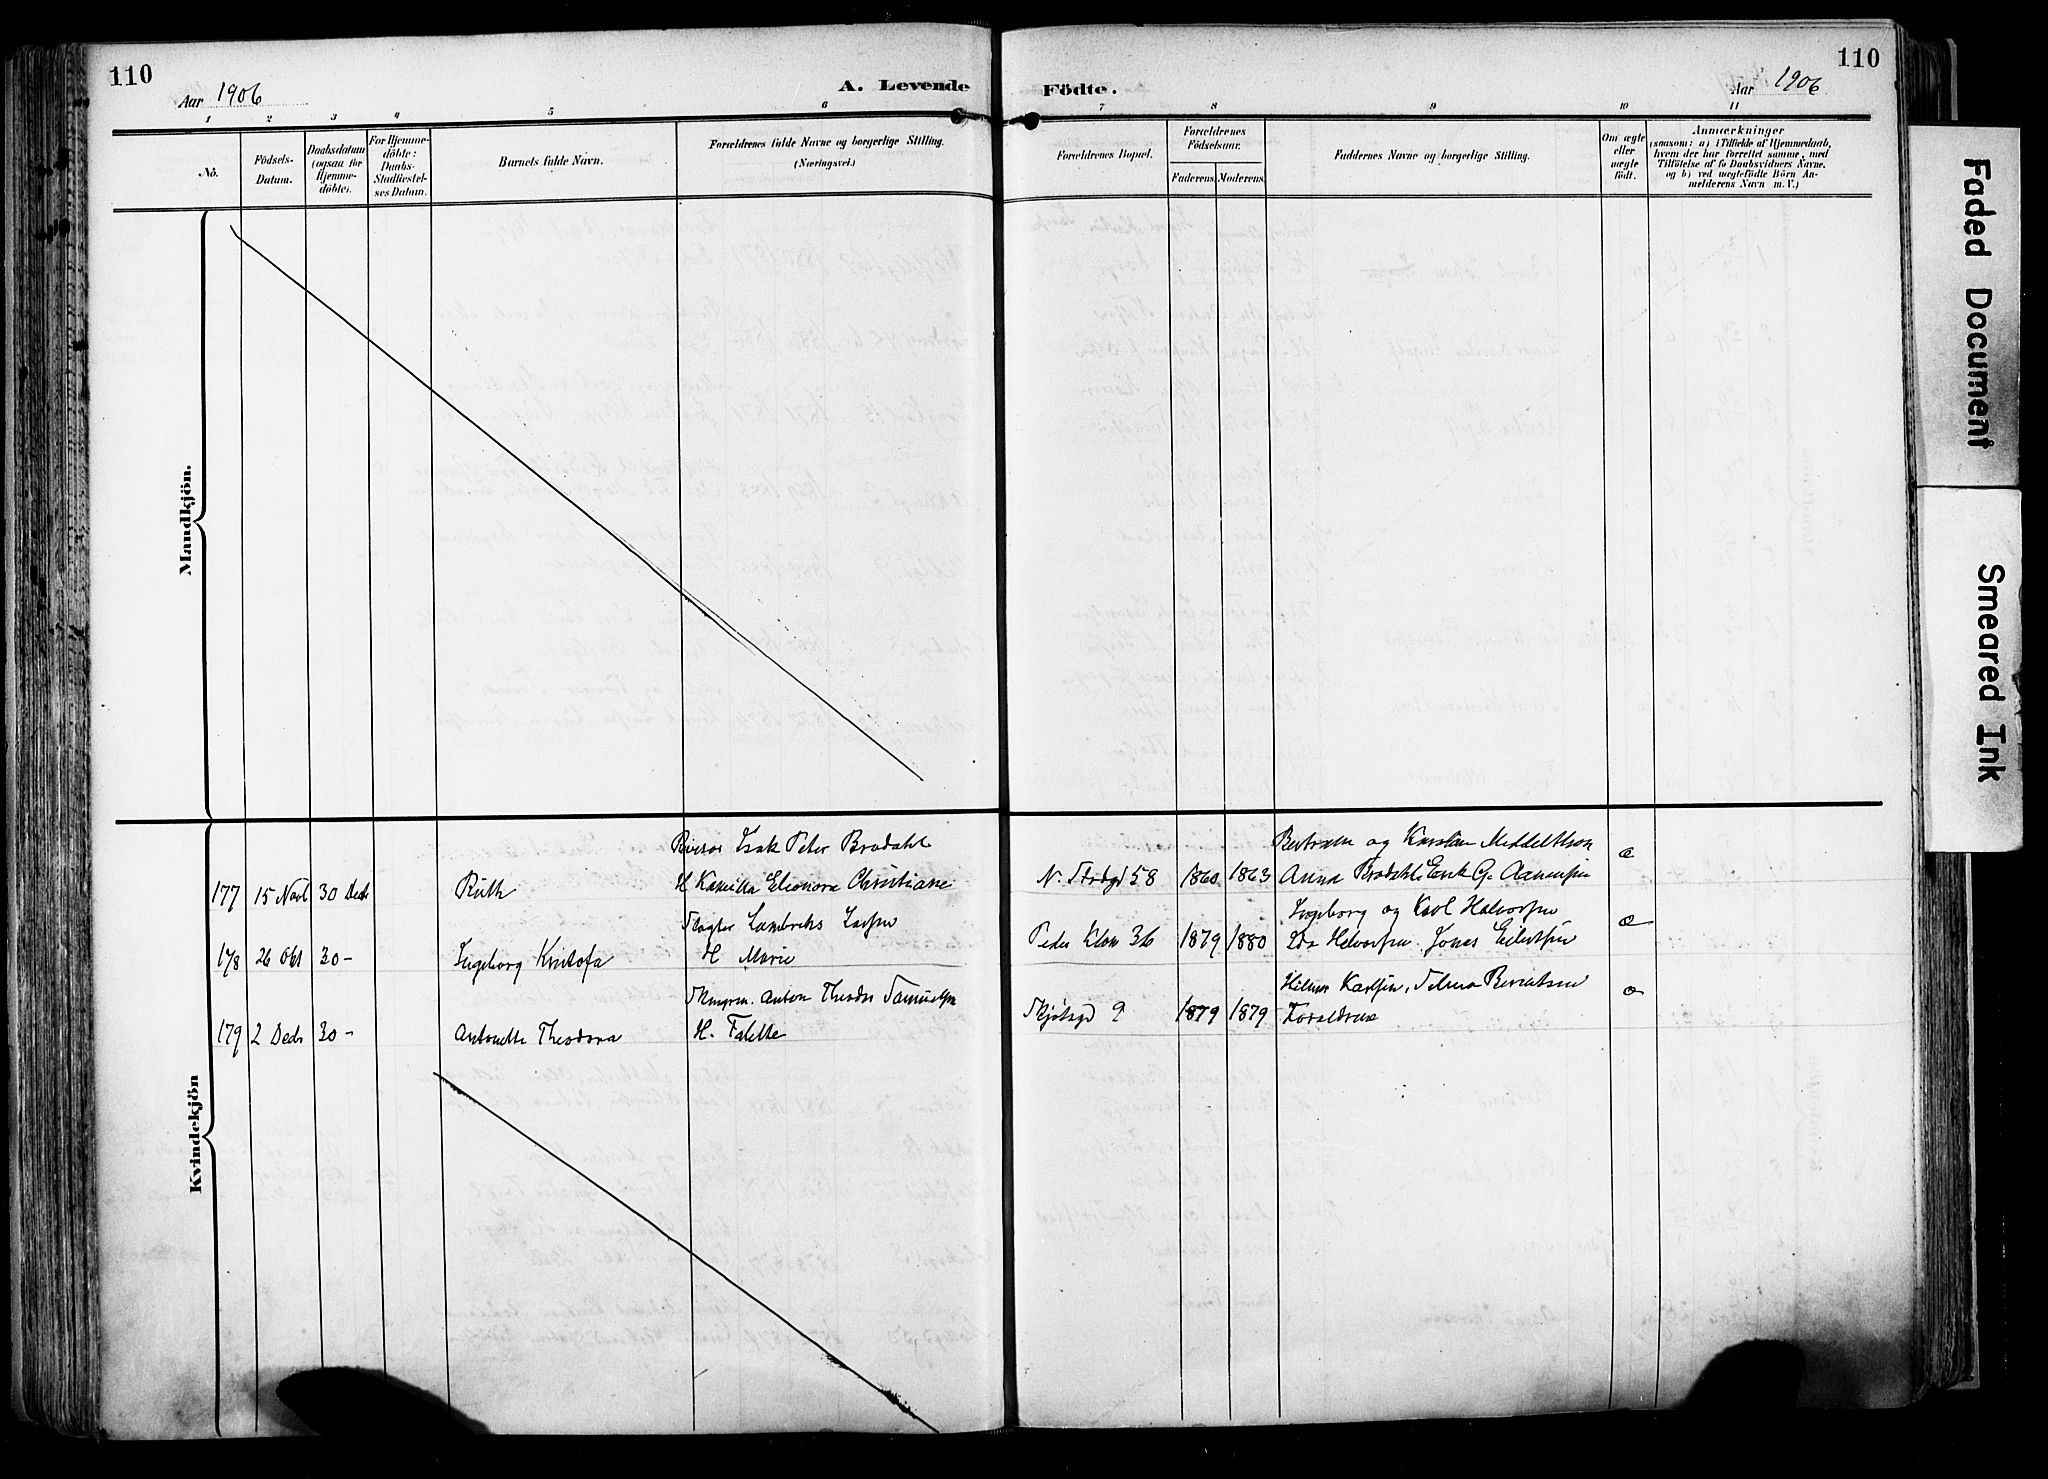 110
Aar 1906
A. Levende
1 2 3 4 5 6
No.
Födsels-
Datum.
Daabsdatum
(ogsaa for
Hjemme-
döbte).
For Hjemme-
döbte:
Daabs-
Stadfæstel-
ses Datum.
Barnets fulde Navn.
Forældrenes fulde Navne og borgerlige Stilling.
(Næringsvei.)
Mandkjön.
Kvindekjön
Isak Peter Brodahl
177 15 Novb 30 Decb Ruth H Kamilla Eleonora Christiane
Slagter Lambreks
178 26 Okt 30 - Ingeborg Kristofa H Marie
Anton Theodor Samuelsen
179 2 Decb 30 - Antonette Theodora H.
110
Födte.
Aar 1906
7 8 9 10 11
Forældrenes Bopæl.
Forældrenes
Födselsaar.
Faderens. Moderens.
Faddernes Navne og borgerlige Stilling.
Om ægte
eller
uægte
födt.
Anmærkninger
(saasom: a) i Tilfælde af Hjemmedaab,
hvem der har forrettet samme, med
Tilföielse af to Daabsvidners Navne.
og b) ved uægtefödte Börn An-
melderens Navn m. V.)
Bertram og Karsten Middelthon
N. Strdgd 58 1860 1863 Anna Brodahl G. Aanensen æ
Ingeborg og Karl Halvorsen
Peder Klow 36 1879 1880 Ida Halvorsen. Jonas Eilertsen æ
Hilmar Karlsen, Selma Berentsen
9 1879 1879 Forældrene æ
Faded Document
Smeared Ink